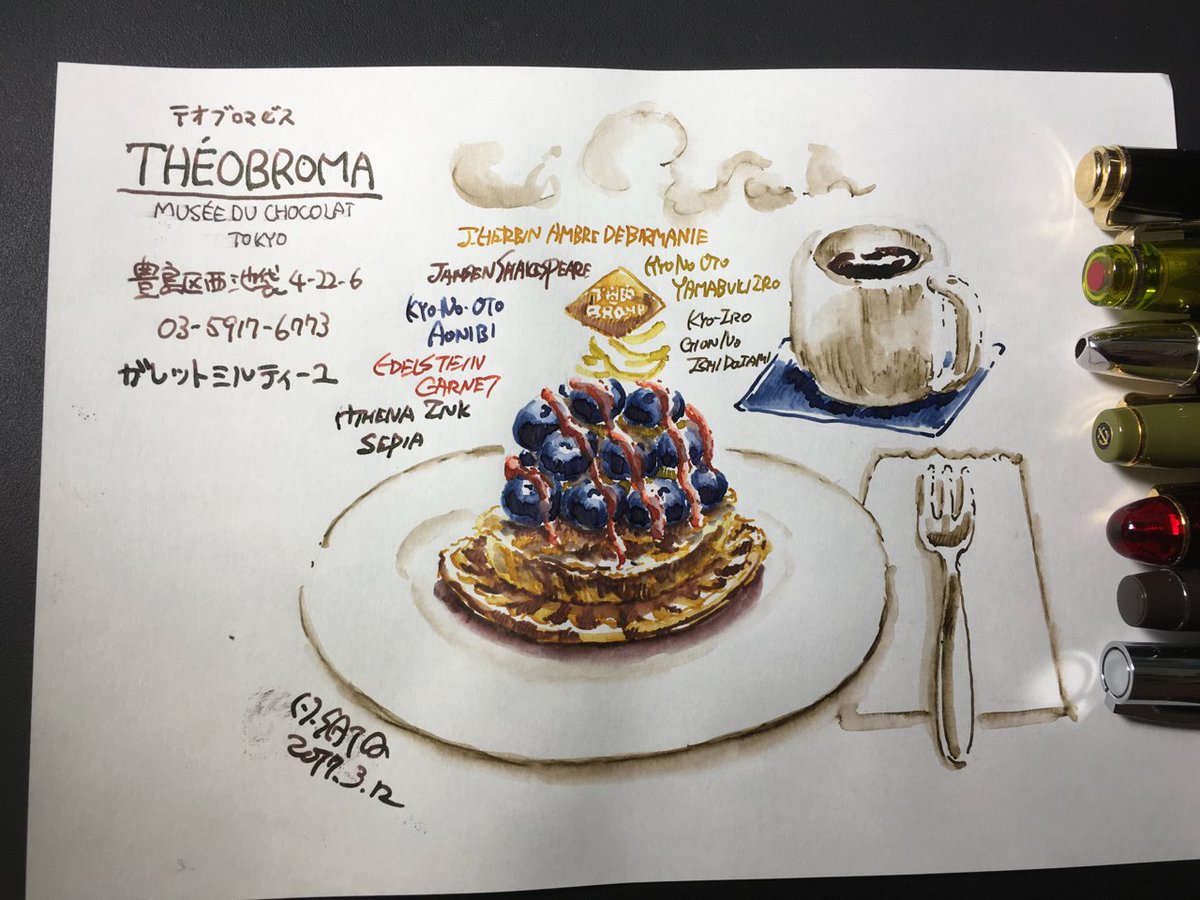 テオブロマビス
THÉOBROMA
MUSÉE DU CHOCOLAT
TOKYO
豊島区西池袋4-22-6
03-5917-6773
ガレットミルティーユ
J.HERBIN AMBRE DE BIRMANIE
JANSEN SHAKESPEARE
KYO-NO-OTO
AONIBI
EDELSTEIN
GARNET
ATHENA INK
SEPIA
KYO NO OTO
YAMABUKIIRO
KYO-IRO
GION NO
ISHIDATAMI
THÉO
BROMA
H.SATO
2017.3.12